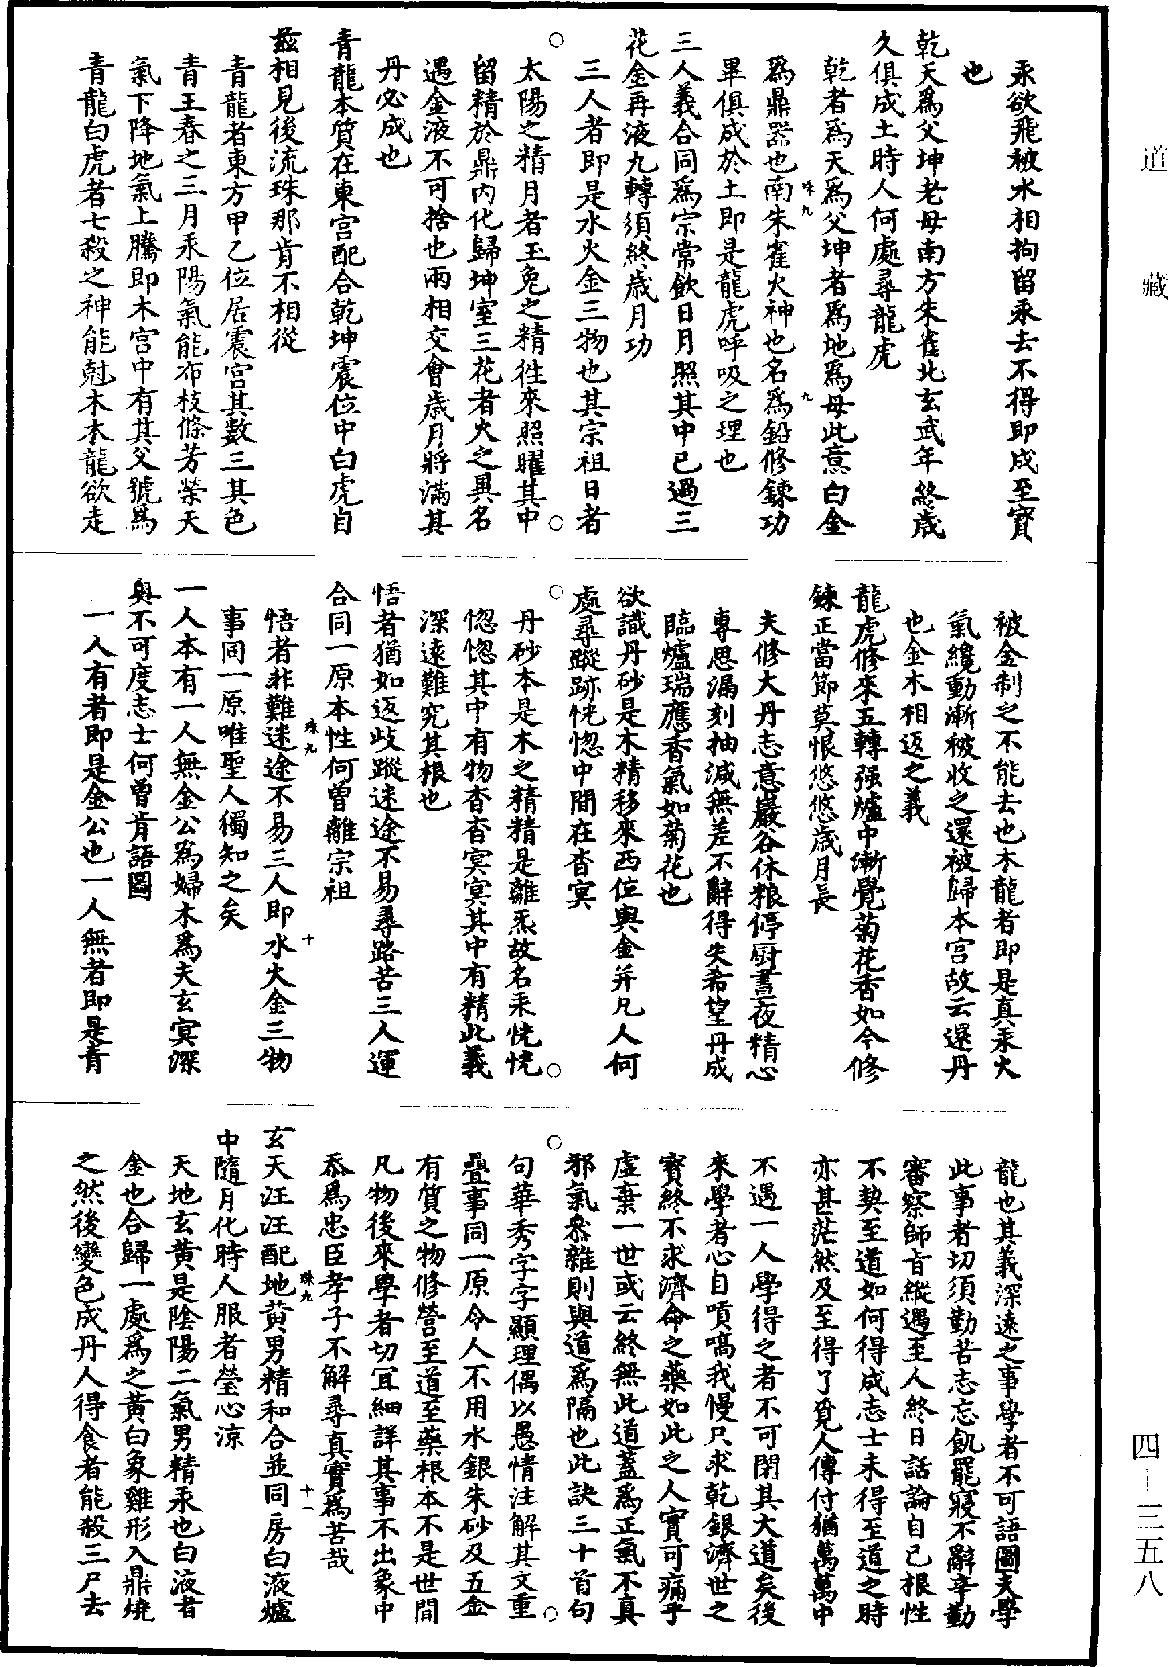 汞欲飛被水相拘留汞去不得即成至寶
也
乾天爲父坤老母南方朱雀北玄武年終歲
久俱成土時人何處尋龍虎
乾者爲天爲父坤者爲地爲母此意白金
爲鼎器也南朱雀火神也名爲鉛修鍊功
畢俱成於土即是龍虎呼吸之理也
三人義合同爲宗常飲日月照其中已過三
花金再液九轉須終歲月功
三人者即是水火金三物也其宗祖日者
太陽之精月者玉兔之精徃來照曜其中
留精於鼎內化歸坤室三花者火之異名
遇金液不可捨也兩相交會歲月將滿其
丹必成也
青龍本質在東宮配合乾坤震位中白虎自
茲相見後流珠那肯不相從
青龍者東方甲乙位居震宮其數三其色
青王春之三月汞陽氣能布枝條芳榮天
氣下降地氣上騰即木宮中有其父號爲
青龍白虎者七殺之神能尅木木龍欲走
被金制之不能去也木龍者即是真汞火
氣纔動漸被收之還被歸本宮故云還丹
也金木相返之義
龍虎修來五轉强爐中漸覺菊花香如今修
鍊正當節莫恨悠悠歲月長
夫修大丹志意巖谷休粮停厨晝夜精心
專思漏刻抽減無差不辭得失希望丹成
臨爐瑞應香氣如菊花也
欲識丹砂是木精移來西位與金并凡人何
處尋蹤跡恍惚中間在杳冥
丹砂本是木之精精是離炁故名汞恍恍
惚惚其中有物杳杳冥冥其中有精此義
深遠難究其根也
悟者猶如返歧蹤迷途不易尋路苦三人運
合同一原本性何曾離宗祖
悟者非難迷途不易三人即水火金三物
事同一原唯聖人獨知之矣
一人本有一人無金公爲婦木爲夫玄冥深
奥不可度志士何曾肯語圖
一人有者即是金公也一人無者即是青
龍也其義深遠之事學者不可語圖夫學
此事者切須勤苦志忘飢罷寢不辭辛勤
審察師旨縱遇至人終日話論自己根性
不契至道如何得成志士未得至道之時
亦甚茫然及至得了覓人傳付猶萬萬中
不遇一人學得之者不可閉其大道矣後
來學者心自嗔嗃我慢只求乾銀濟世之
寶終不求濟命之藥如此之人實可痛乎
虛棄一世或云終無此道蓋爲正氣不真
邪氣叅雜則與道爲隔也此訣三十首句
句華秀字字顯理偶以愚情注解其文重
疊事同一原令人不用水銀朱砂及五金
有質之物修營至道至藥根本不是世間
凡物後來學者切冝細詳其事不出象中
忝爲忠臣孝子不解尋真實爲苦哉
玄天汪汪配地黃男精和合並同房白液爐
中隨月化時人服者瑩心涼
天地玄黃是陰陽二氣男精汞也白液者
金也合歸一處爲之黃白象雞形入鼎燒
之然後變色成丹人得食者能殺三尸去
道藏
四—三五八